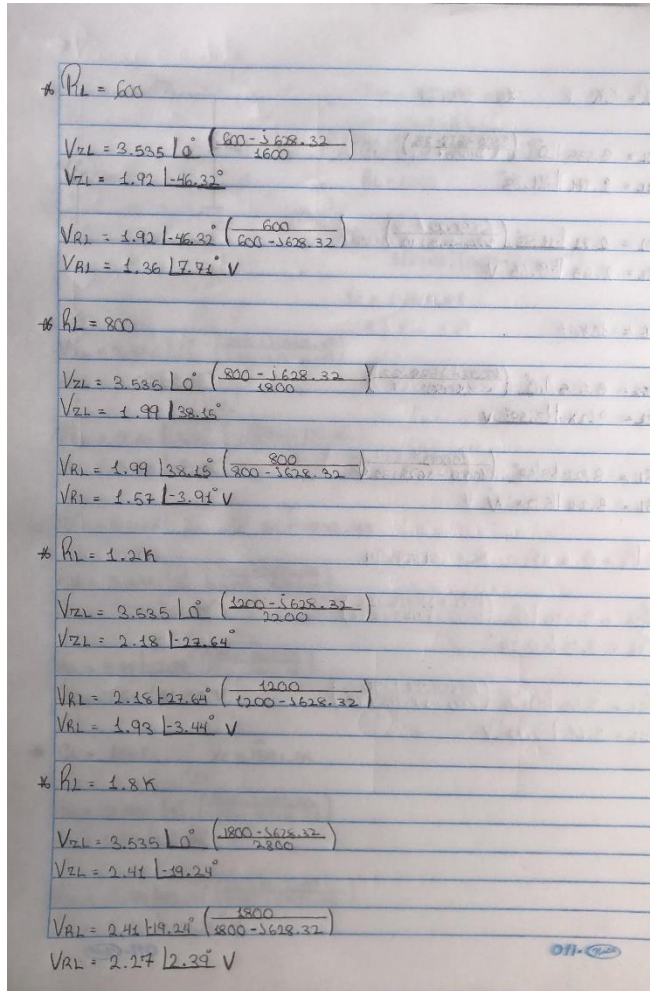 * RL = 600
VZL = 3.535 ∠0° (600 - j628.32 / 1600)
VZL = 1.92 ∠-46.32°
VRL = 1.92 ∠-46.32° (600 / 600 - j628.32)
VRL = 1.36 ∠7.71° V
* RL = 800
VZL = 3.535 ∠0° (800 - j628.32 / 1800)
VZL = 1.99 ∠38.15°
VRL = 1.99 ∠38.15° (800 / 800 - j628.32)
VRL = 1.57 ∠-3.91° V
* RL = 1.2K
VZL = 3.535 ∠0° (1200 - j628.32 / 2200)
VZL = 2.18 ∠-27.64°
VRL = 2.18 ∠-27.64° (1200 / 1200 - j628.32)
VRL = 1.93 ∠-3.44° V
* RL = 1.8K
VZL = 3.535 ∠0° (1800 - j628.32 / 2800)
VZL = 2.41 ∠-19.24°
VRL = 2.41 ∠-19.24° (1800 / 1800 - j628.32)
VRL = 2.27 ∠2.39° V